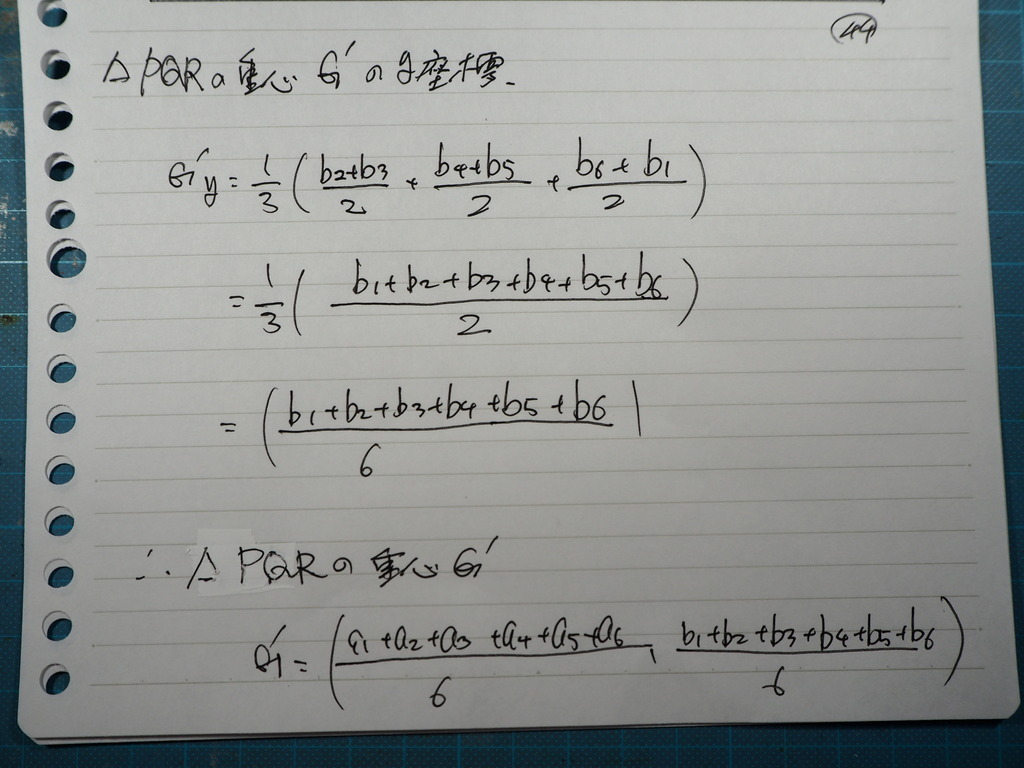 44
△PQRの重心 G'のy座標
G'y = 1/3 ( (b2+b3)/2 + (b4+b5)/2 + (b6+b1)/2 )
= 1/3 ( (b1+b2+b3+b4+b5+b6)/2 )
= ( (b1+b2+b3+b4+b5+b6)/6 )
∴ △PQRの重心 G'
G' = ( (a1+a2+a3+a4+a5+a6)/6 , (b1+b2+b3+b4+b5+b6)/6 )